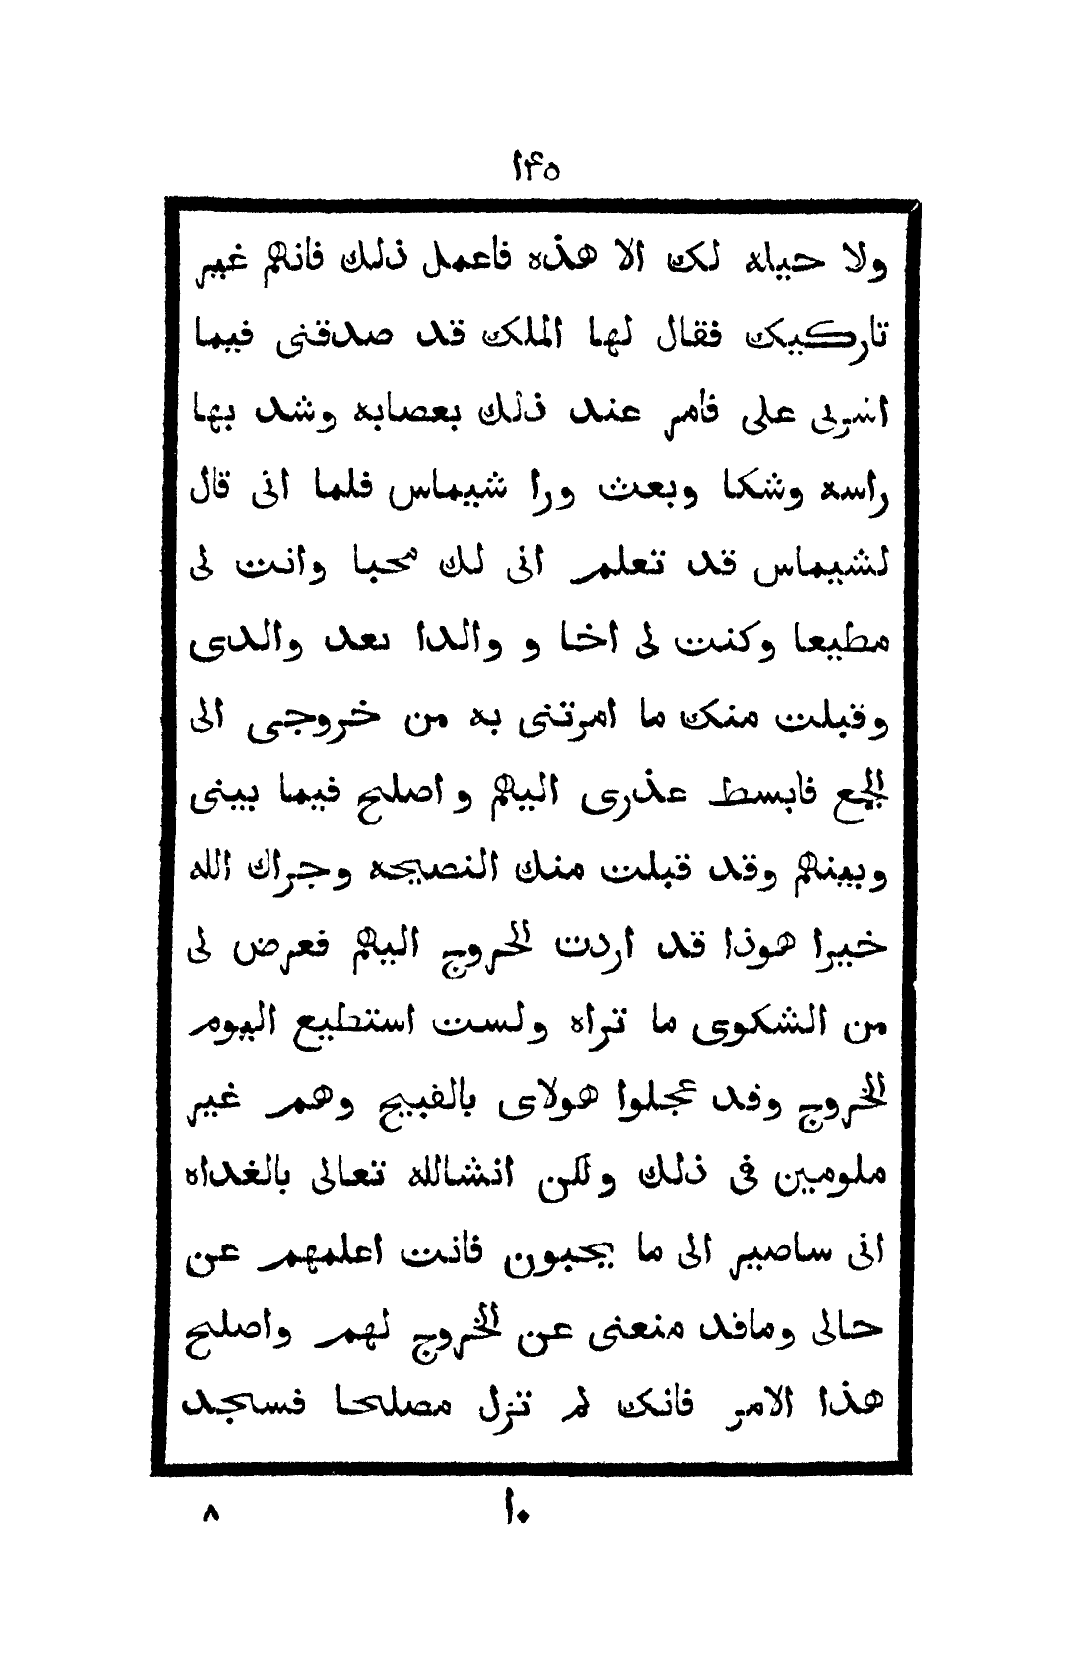 ١٤٥
ولا حيله لك الا هذه فاعمل ذلك فانهم غير
تاركيك فقال لها الملك قد صدقنى فيما
اشرنى على فامر عند ذلك بعصابه وشد بها
راسه وشكا وبعث ورا شيماس فلما اتى قال
لشيماس قد تعلم انى لك محبا وانت لى
مطيعا وكنت لى اخا و والدا بعد والدى
وقبلت منك ما امرتنى به من خروجى الى
الجمع فابسط عذرى اليهم و اصلح فيما بينى
وبينهم وقد قبلت منك النصيحه وجراك الله
خيرا هوذا قد اردت الخروج اليهم فعرض لى
من الشكوى ما تراه ولست استطيع اليوم
الخروج وقد عجلوا هولاى بالقبيح وهم غير
ملومين فى ذلك ولكن انشالله تعالى بالغداه
انى ساصير الى ما يحبون فانت اعلمهم عن
حالى وماقد منعنى عن الخروج لهم واصلح
هذا الامر فانك لم تزل مصلحا فسجد
١٠
٨